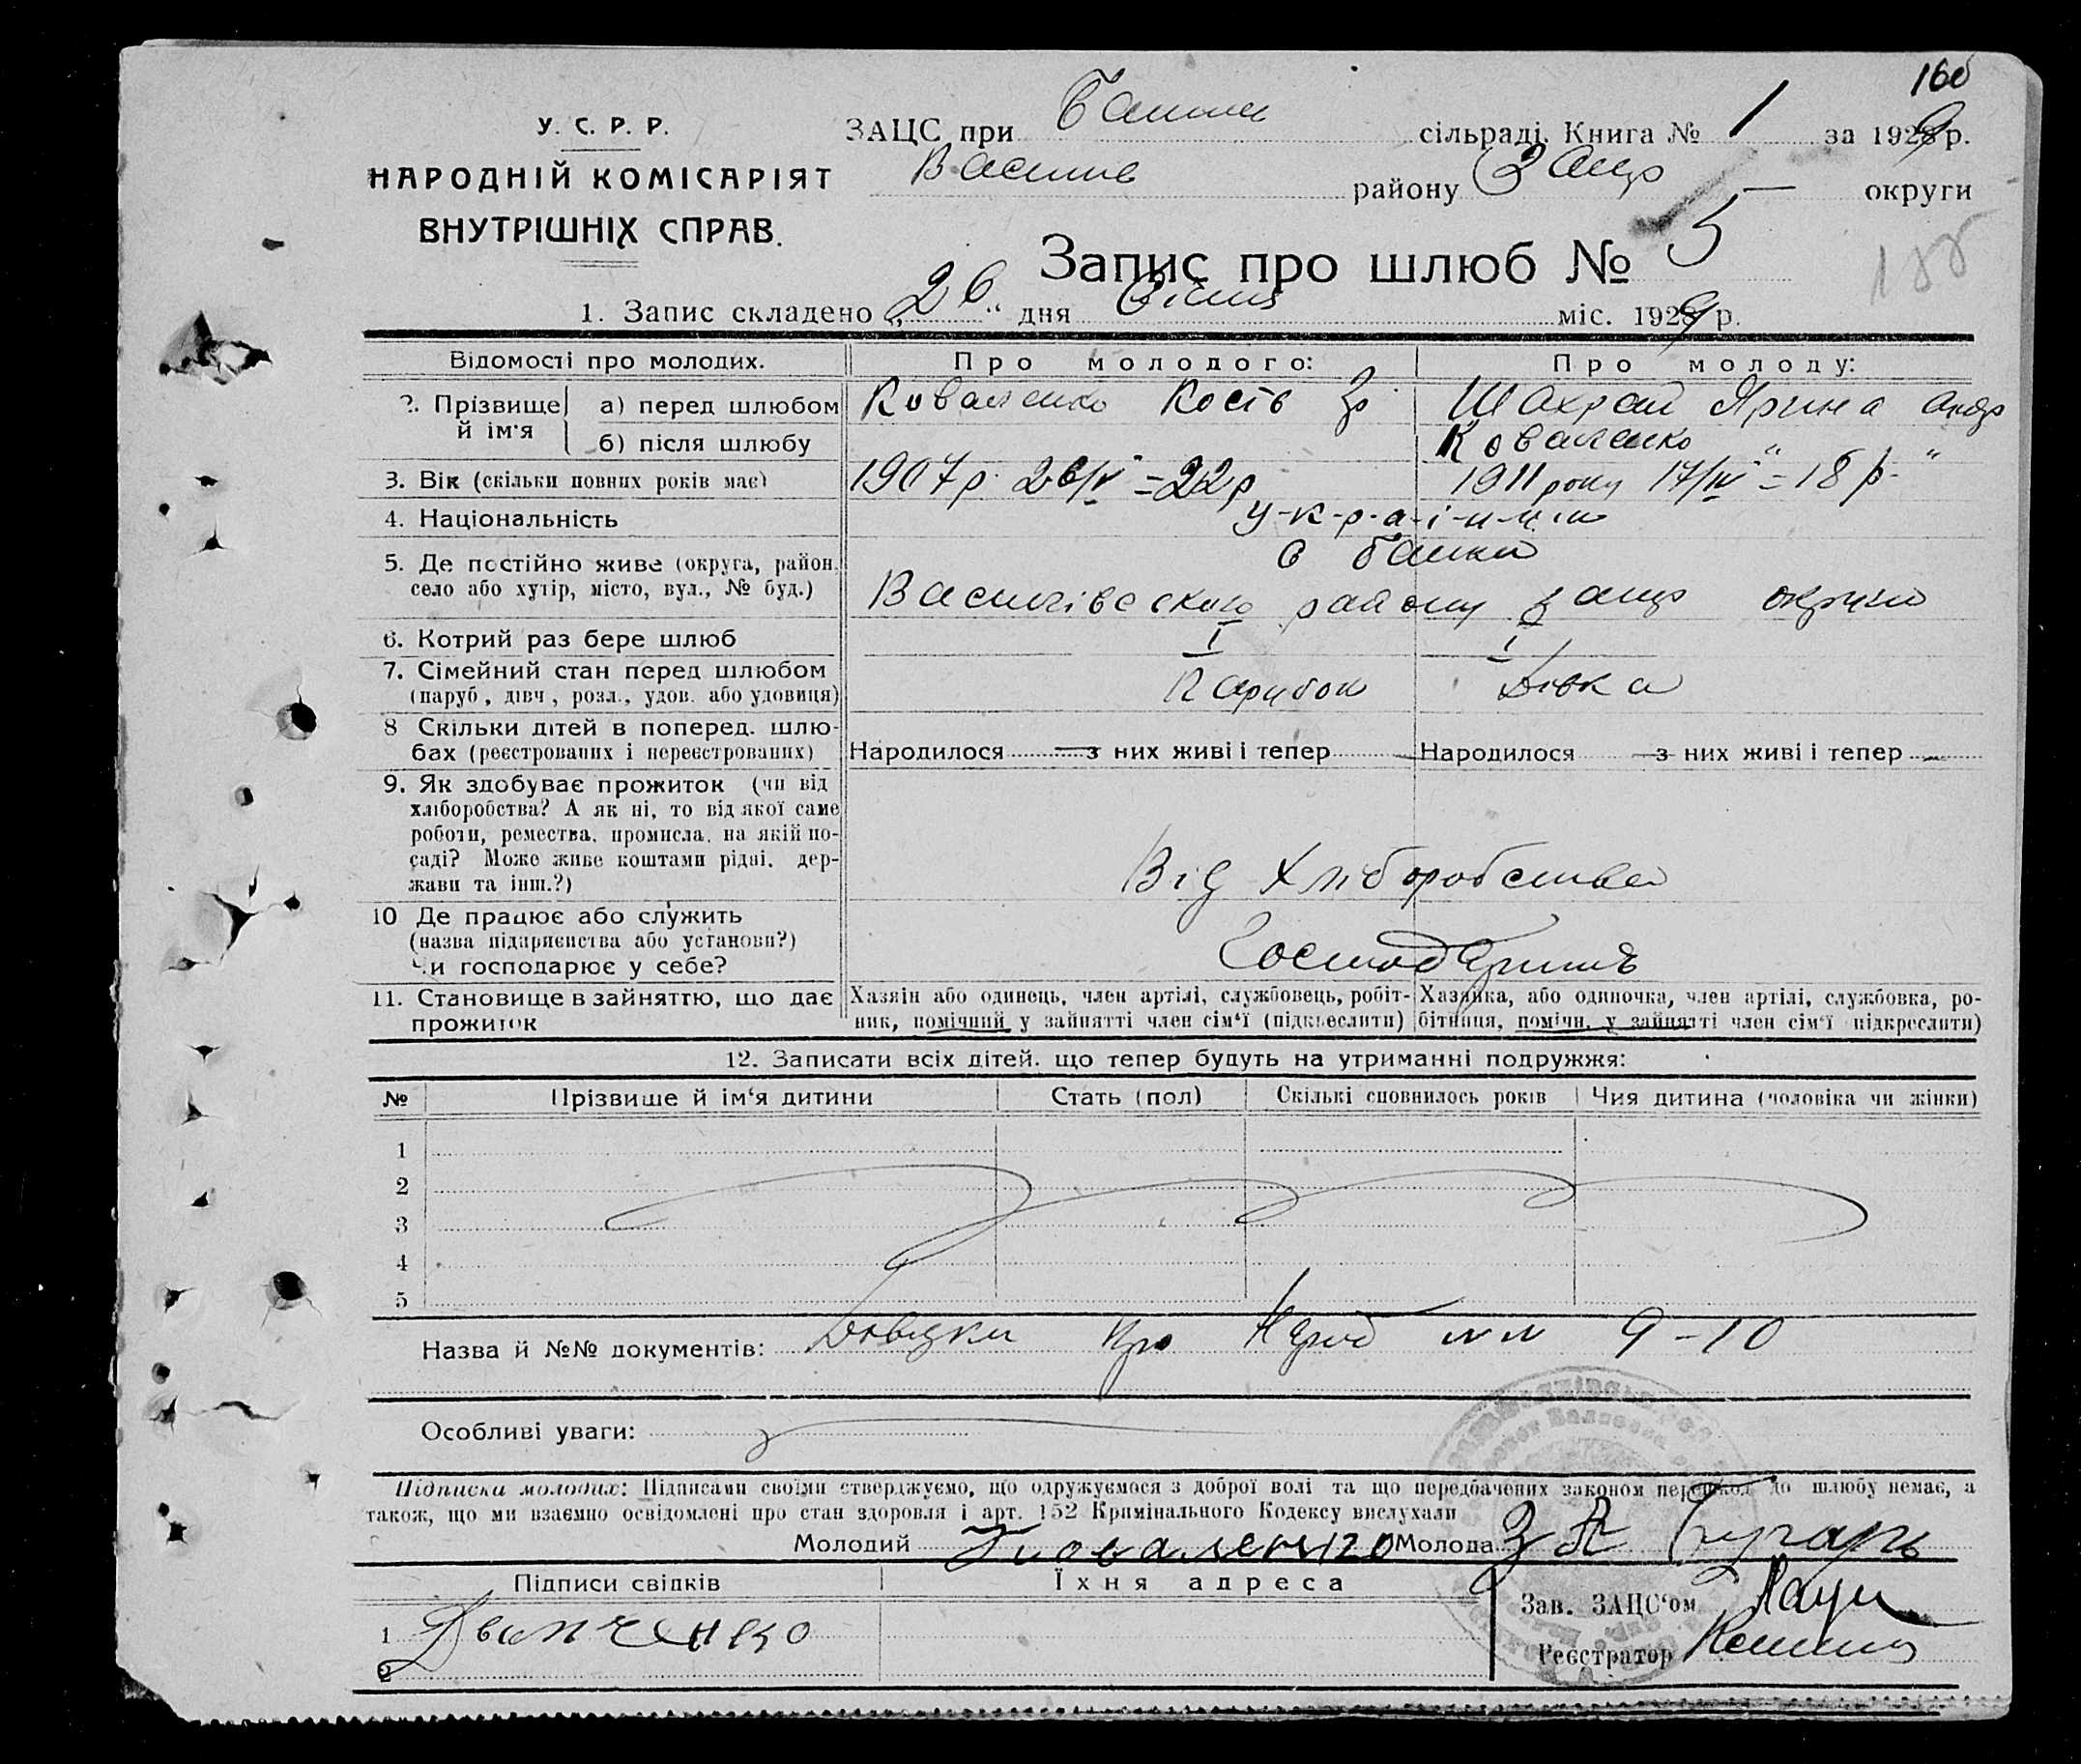 160
У. С. Р. Р.
НАРОДНІЙ КОМІСАРІЯТ
ВНУТРІШНІХ СПРАВ.
ЗАЦС при Балки сільраді. Книга № 1 за 1929 р.
Василів району Запо округи
Запис про шлюб № 5
188
1. Запис складено „26“ дня Січня міс. 1929 р.
Відомості про молодих. Про молодого: Про молоду:
2. Прізвище й ім'я
а) перед шлюбом Коваленко Кость Гр Шахрай Ярина Андр
б) після шлюбу Коваленко "
3. Вік (скільки повних років має) 1907 р. 26/V = 22 р 1911 року 17/IV = 18 р. "
4. Національність у-к-р-а-ї-н-ц
5. Де постійно живе (округа, район, с Балки
село або хутір, місто, вул., № буд.) Василівського району Запо округи
6. Котрий раз бере шлюб I I
7. Сімейний стан перед шлюбом
(паруб., дівч., розл., удов. або удовиця) Парубок Дівка
8 Скільки дітей в поперед. шлю-
бах (реєстрованих і нереєстрованих) Народилося — з них живі і тепер — Народилося — з них живі і тепер —
9. Як здобуває прожиток (чи від
хліборобства? А як ні, то від якої саме
роботи, ремества, промисла, на якій по-
саді? Може живе коштами рідні, дер-
жави та інш.?) Від Хліборобства
10 Де працює або служить
(назва підприємства або установи?)
Чи господарює у себе?
11. Становище в зайняттю, що дає
прожиток
Хазяїн або одинець, член артілі, службовець, робіт-
ник, помічний у зайнятті член сім'ї (підкреслити)
Хазяйка, або одиночка, член артілі, службовка, ро-
бітниця, помічн. у зайнятті член сім'ї підкреслити)
12. Записати всіх дітей. що тепер будуть на утриманні подружжя:
№ Прізвище й ім'я дитини Стать (пол) Скількі сповнилось років Чия дитина (чоловіка чи жінки)
1
2
3
4
5
Назва й №№ документів: Довідки про Народ №№ 9-10
Особливі уваги:
Підписка молодих: Підписами своїми стверджуємо, що одружуємося з доброї волі та що передбачених законом перешкод до шлюбу немає, а
також, що ми взаємно освідомлені про стан здоровля і арт. 152 Кримінального Кодексу вислухали
Молодий Коваленко Молода
Підписи свідків Їхня адреса
Зав. ЗАЦС'ом
1
2
Реєстратор